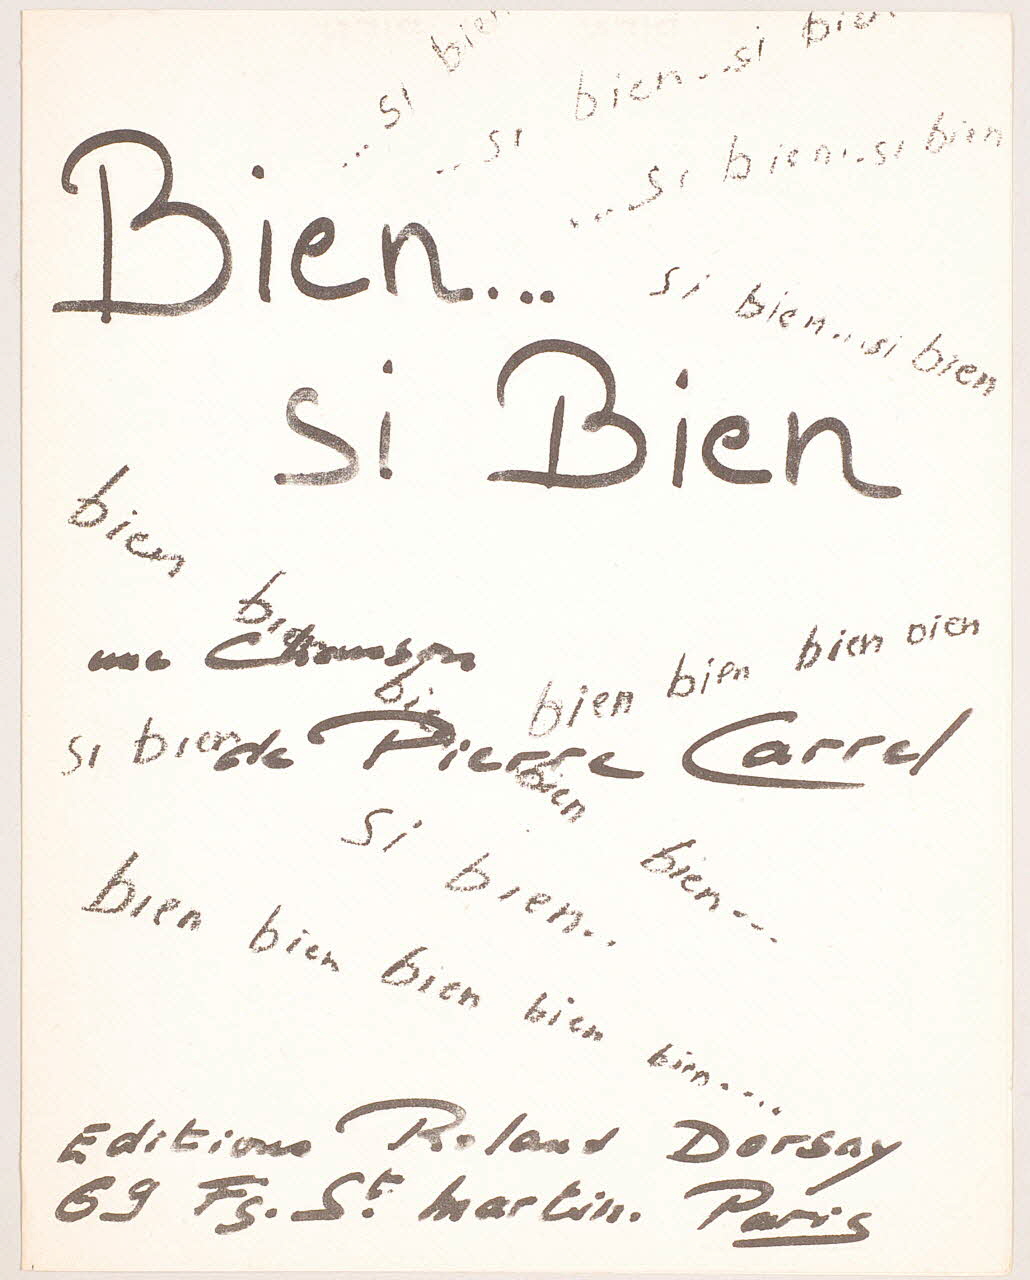 ...si bien
...si bien...si bien
...si bien...si bien
Bien...
si bien...si bien
si Bien
bien
bien
une Chanson
bien bien bien bien
bien
si bien
de Pierre Carrel
bien
si bien..
bien...
bien bien bien bien bien....
Editions Roland Dorsay
69 Fg. St. Martin. Paris